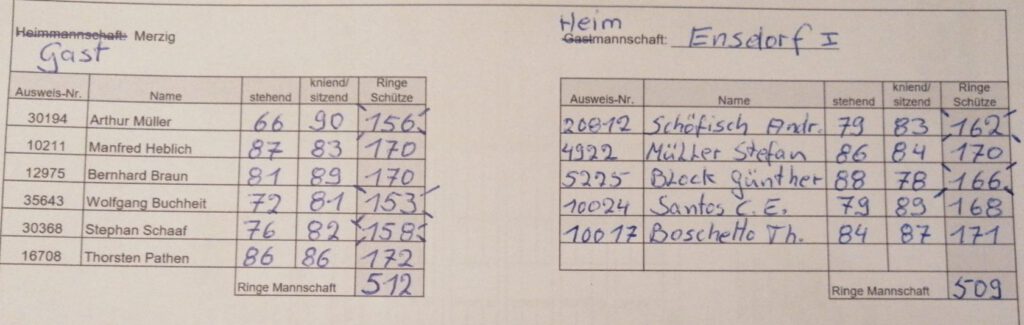 Heimmannschaft: Merzig
Gast
Ausweis-Nr. Name stehend kniend/ sitzend Ringe Schütze
30194 Arthur Müller 66 90 156
10211 Manfred Heblich 87 83 170
12975 Bernhard Braun 81 89 170
35643 Wolfgang Buchheit 72 81 153
30368 Stephan Schaaf 76 82 158
16708 Thorsten Pathen 86 86 172
Ringe Mannschaft 512
Heim
Gastmannschaft: Ensdorf I
Ausweis-Nr. Name stehend kniend/ sitzend Ringe Schütze
20812 Schöfisch Andr. 79 83 162
4922 Müller Stefan 86 84 170
5225 Block Günther 88 78 166
10024 Santos C. E. 79 89 168
10017 Boschetto Th. 84 87 171
Ringe Mannschaft 509